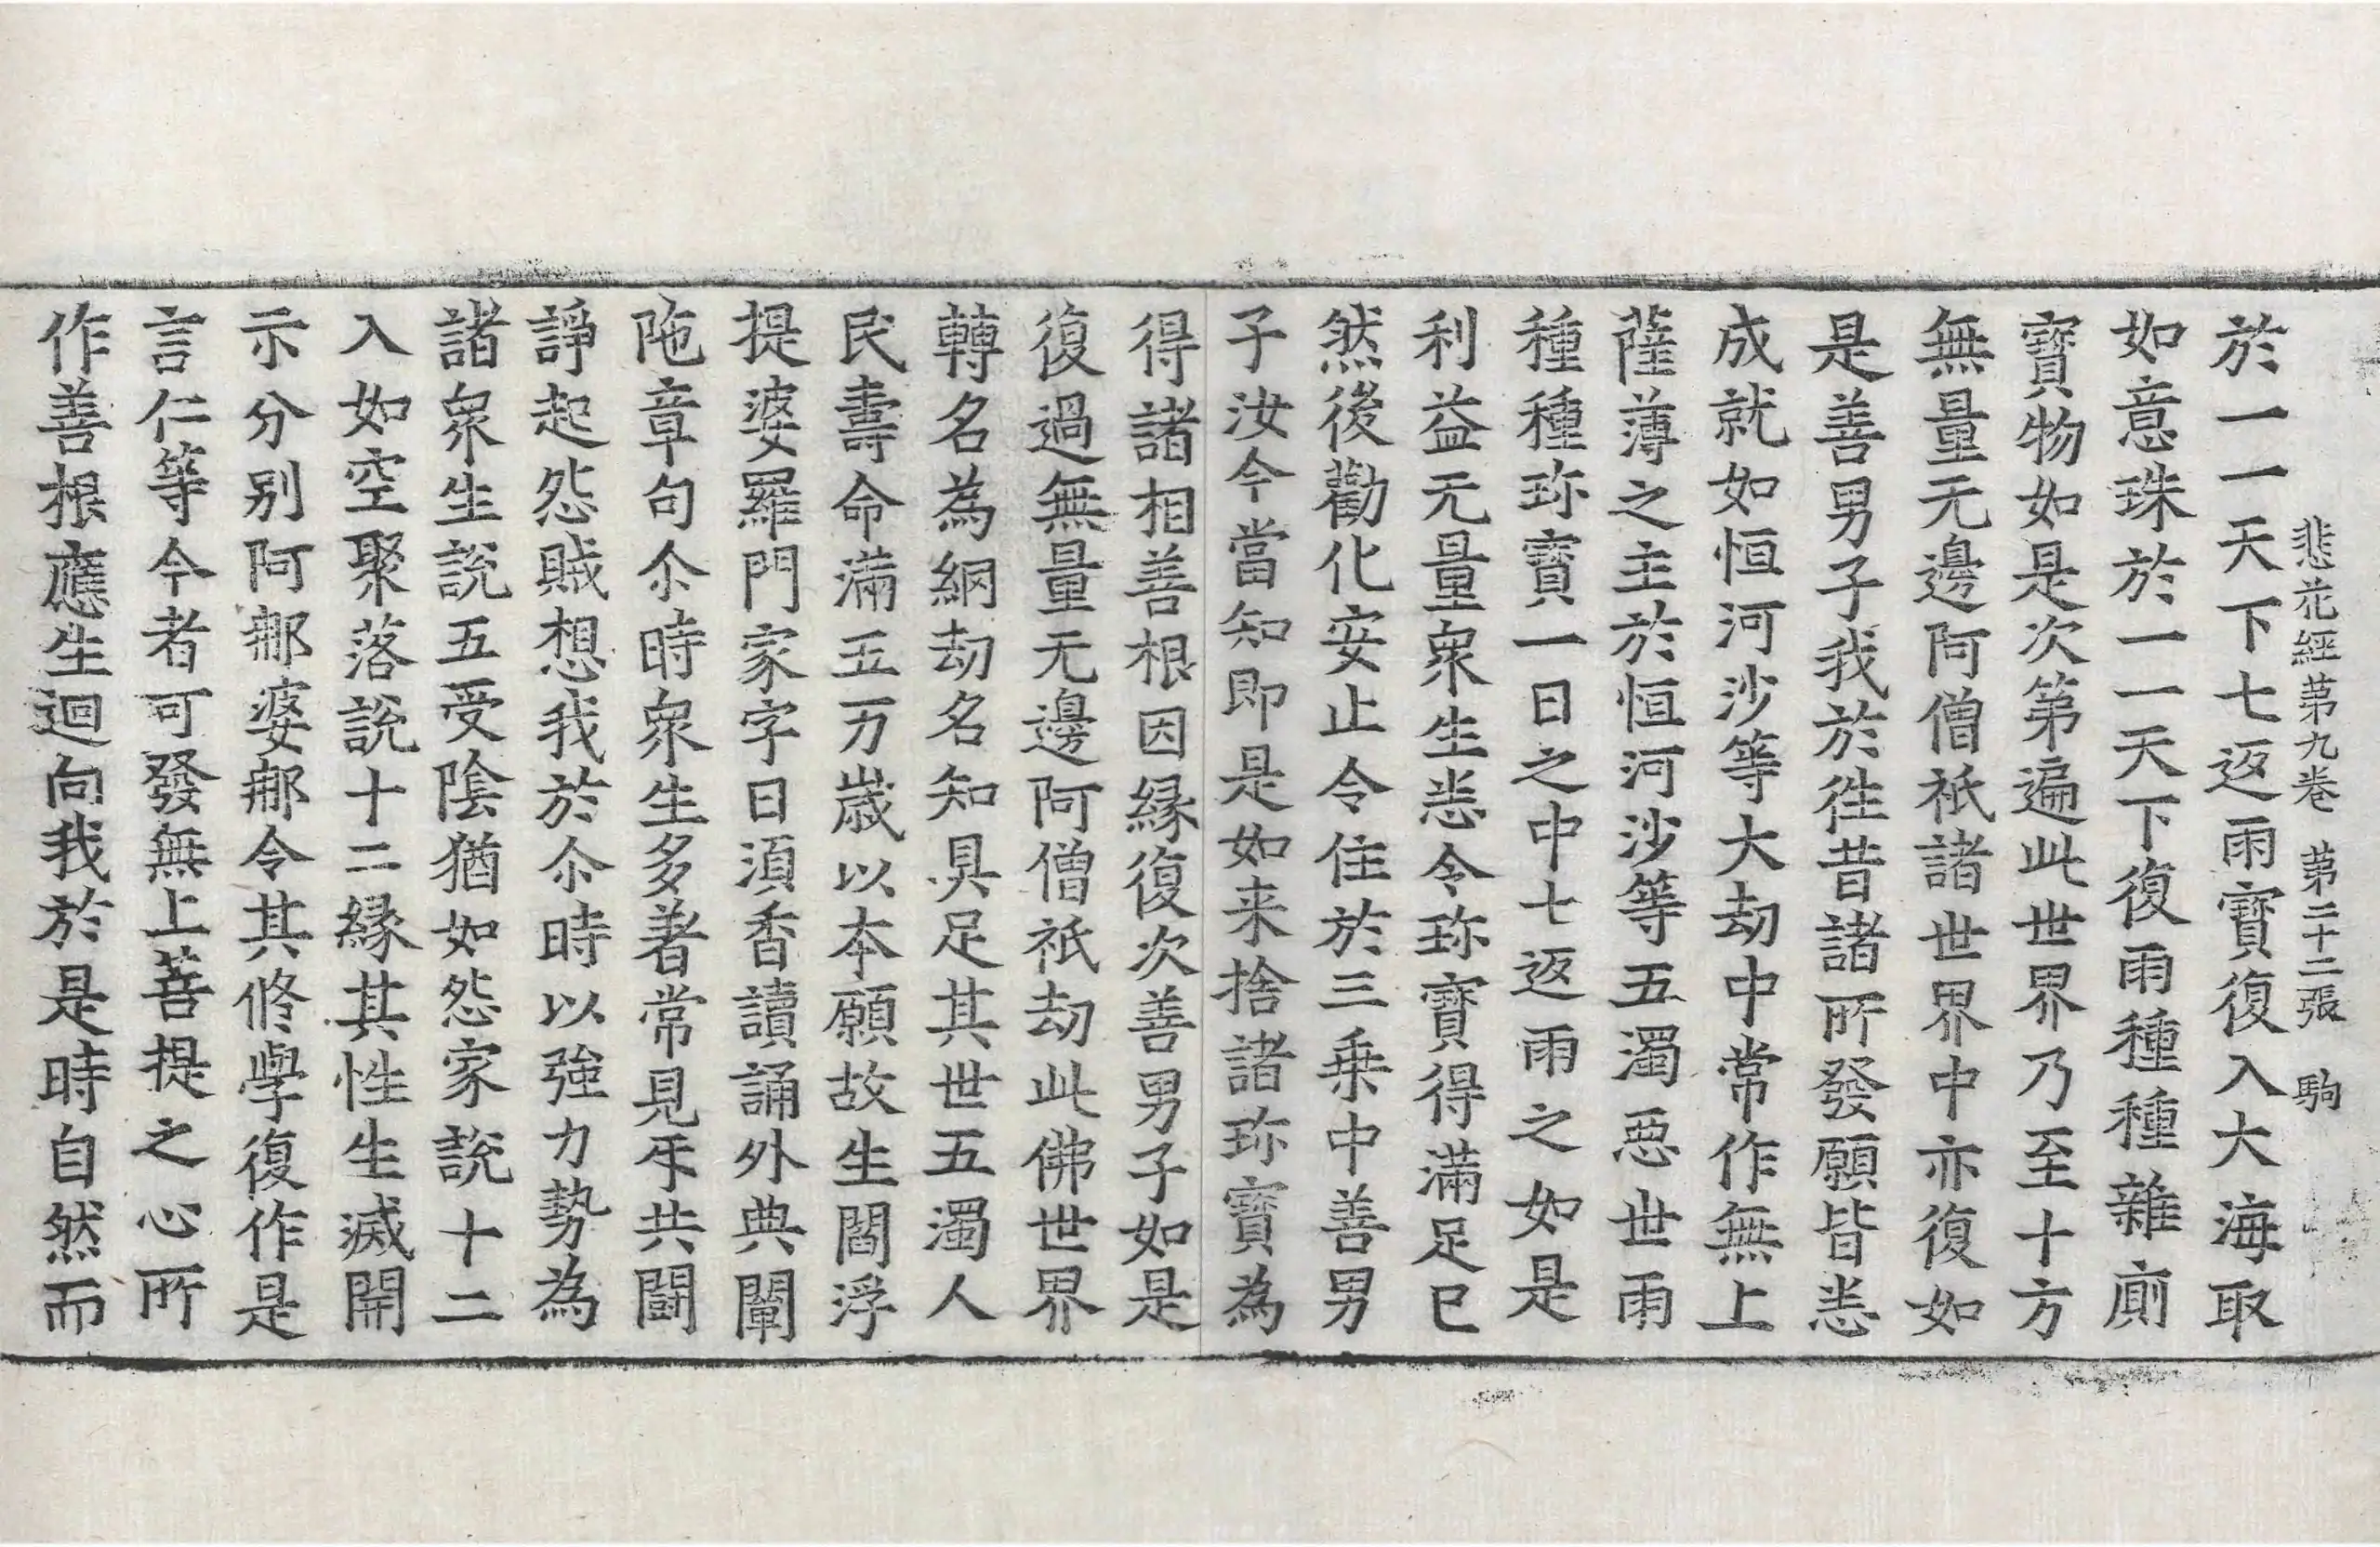 悲花經第九卷　第二十二張　駒
於一一天下七返雨寶復入大海取
如意珠於一一天下復雨種種雜廁
寶物如是次第遍此世界乃至十方
無量无邊阿僧祇諸世界中亦復如
是善男子我於徃昔諸所發願皆悉
成就如恒河沙等大劫中常作無上
薩薄之主於恒河沙等五濁惡世雨
種種珎寶一日之中七返雨之如是
利益无量衆生悉令珎寶得滿足已
然後勸化安止令住於三乗中善男
子汝今當知即是如来捨諸珎寶為
得諸相善根因縁復次善男子如是
復過無量无邊阿僧祇劫此佛世界
轉名為網劫名知具足其世五濁人
民壽命滿五万歲以本願故生閻浮
提婆羅門家字曰湏香讀誦外典闡
陁章句尒時衆生多著常見乐共鬪
諍起怨賊想我於尒時以強力勢為
諸衆生說五受陰猶如怨家說十二
入如空聚落說十二縁其性生滅開
示分别阿那婆那令其修學復作是
言仁等今者可發無上菩提之心所
作善根應生迴向我於是時自然而